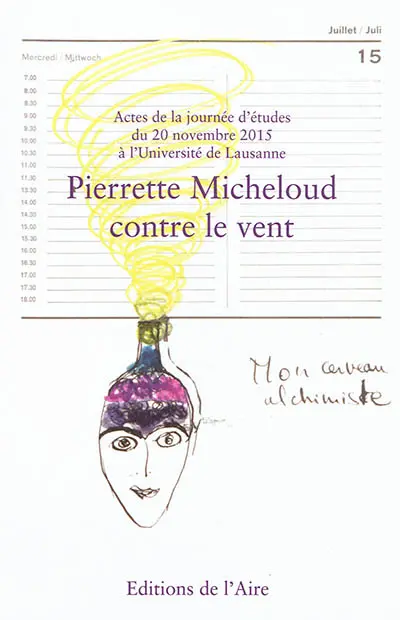 Juillet / Juli
Mercredi / Mittwoch
15
7.00
8.00
9.00
10.00
11.00
12.00
13.30
14.00
15.00
16.00
17.30
18.00
Actes de la journée d'études
du 20 novembre 2015
à l'Université de Lausanne
Pierrette Micheloud
contre le vent
Mon cerveau
alchimiste
Editions de l'Aire